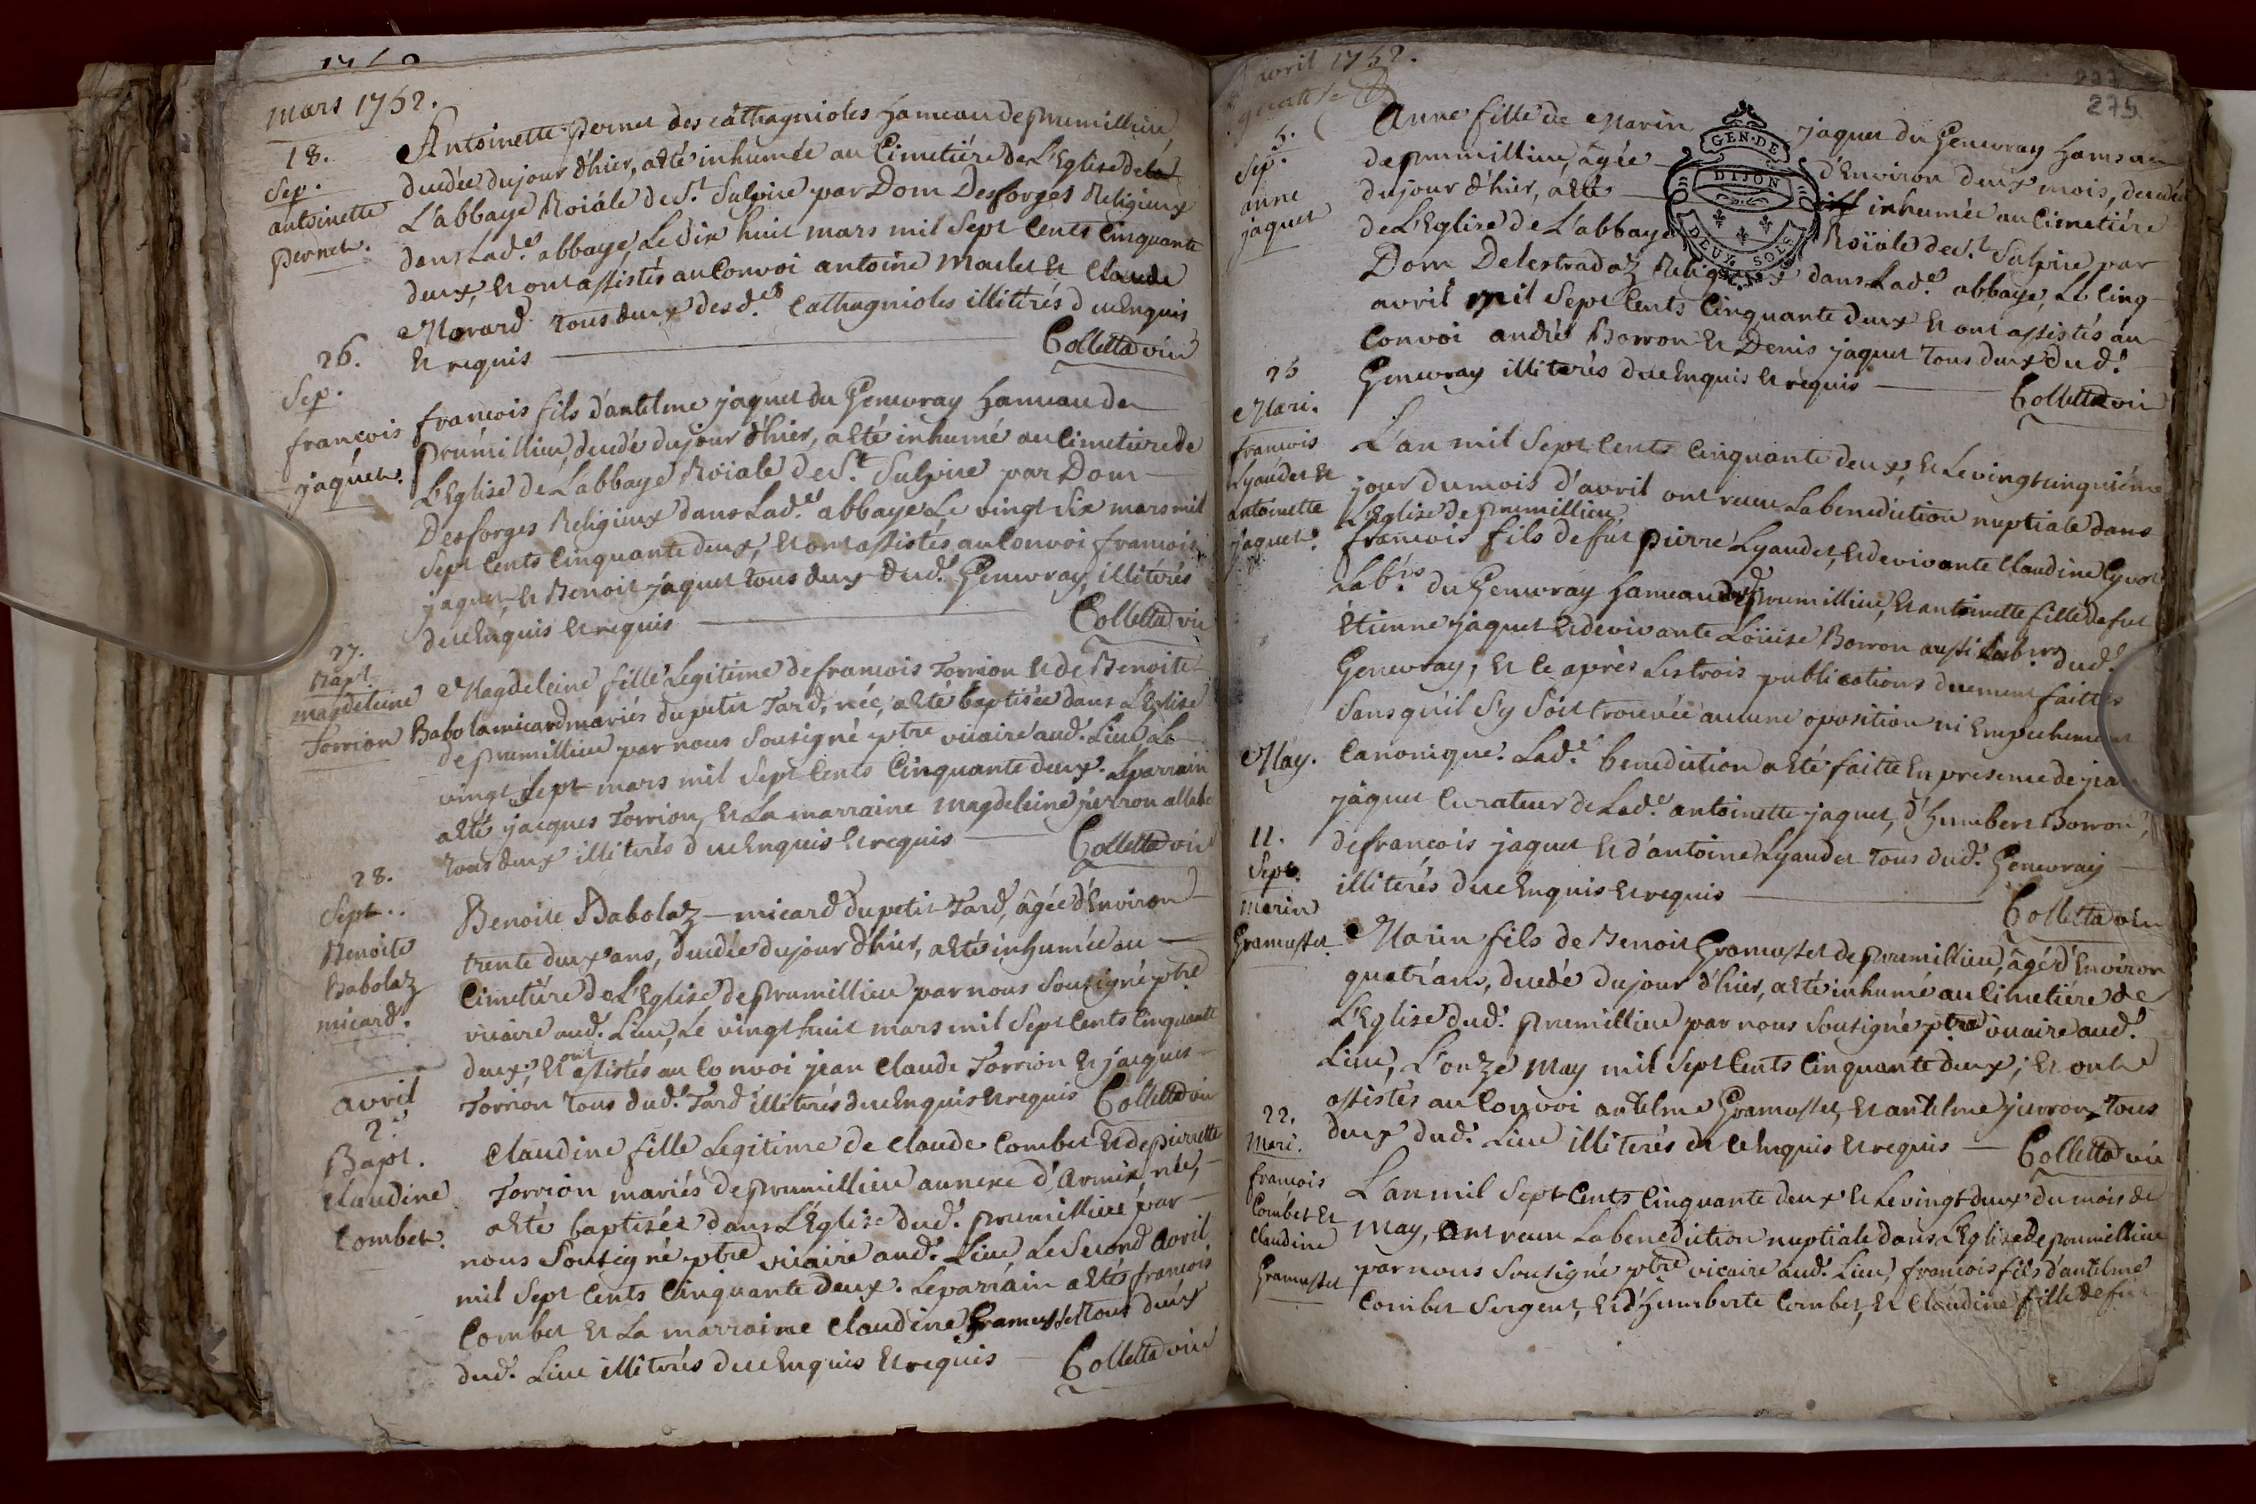 mars 1752.
18.
Sep.
antoinette
pernet.
Antoinette pernet des cathagnioles hameau de prumillieu
decedée du jour d'hier, a été inhumée au Cimetiére de L'Eglise de
L'abbaye Roiale de St. Sulpice par Dom Desforges Religieux
dans lad.e abbaye, Le dix huit mars mil Sept Cents Cinquante
deux, Et ont assistés au Convoi antoine Marlet Et Claude
Morard tous deux desd.es Cathagnioles illiterés de ce Enquis
Et requis Colletta vic
26.
Sep.
francois
jaquet.
francois fils d'antelme jaquet du Genevray hameau de
prumillieu, decedé du jour d'hier, a été inhumé au Cimetiere de
L'Eglise de L'abbaye Roiale de St. Sulpice par Dom
Desforges Religieux dans Lad.e abbaye Le vingt Six mars mil
Sept Cents Cinquante deux, Et ont assistés au Convoi francois
jaquet Et Benoit jaquet tous deux dud. Genevray, illiterés
de ce Enquis Et requis Colletta vic
27.
Bapt.
magdeleine
Torrion
Magdeleine fille Legitime de francois Torrion Et de Benoite
Babolamicard mariés du petit Tard, née, a été baptisée dans L'Eglise
de prumillieu par nous Sousigné ptre vicaire aud. Lieu Le
vingt Sept mars mil Sept Cents Cinquante deux. Le parrain
a été jacques Torrion, Et La marraine Magdeleine jierron
tous deux illiterés de ce Enquis Et requis Colletta vic
28.
Sept.
Benoite
Babolaz
micard.
Benoite Babolaz-micard du petit Tard, âgée d'Environ
trente deux ans, decedée du jour d'hier, a été inhumée au
Cimetiére de L'Eglise de prumillieu par nous Sousigné ptre
vicaire aud. Lieu, Le vingt huit mars mil Sept Cents Cinquante
deux; Et ont assistés au Convoi jean Claude Torrion Et jacques
Torrion tous dud. Tard illiterés de ce Enquis Et requis Colletta vic
avril
2.
Bapt.
claudine
Combet.
Claudine fille Legitime de claude Combet Et de pierrette
Torrion mariés de prumillieu annexe d'Armix, née,
a été baptisée dans L'Eglise dud. prumillieu par
nous Sousigné ptre vicaire aud. Lieu, Le Second avril
mil Sept Cents Cinquante deux. Le parrain a été francois
Combet Et La marraine Claudine Gramusset tous deux
dud. Lieu illiterés de ce Enquis Et requis Colletta vic
avril 1752.
275
GEN. DE
DIJON
DEUX SOLS
5.
Sep.
anne
jaquet
Anne fille de Marin jaquet du Genevray hameau
de prumillieu, âgée d'Environ deux mois, decedée
du jour d'hier, a été inhumée au Cimetiére
de L'Eglise de L'abbaye Roiale de St. Sulpice par
Dom Delestradaz Religieux dans Lad.e abbaye, Le Cinq
avril mil Sept Cents Cinquante deux Et ont assistés au
Convoi andré Borron Et Denis jaquet tous deux dud.
Genevray illiterés de ce Enquis Et requis Colletta vic
25
Mari.
francois
Lyaudet Et
antoinette
jaquet.
L'an mil Sept Cents Cinquante deux, Et Le vingt cinquiéme
jour du mois d'avril ont receu La benediction nuptiale dans
L'Eglise de prumillieu
francois fils de fut pierre Lyaudet, Et de vivante Claudine Cyvot
Lab.rs du Genevray hameau de prumillieu, Et antoinette fille de fut
Étienne jaquet Et de vivante Loüise Borron aussi Lab.rs dud.
Genevray; Et ce après Les trois publications duement faittes
Sans qu'il S'y Soit trouvée aucune oposition ni Empechement
Canonique. Lad.e benediction a été faitte En presence de
jaquet Curateur de Lad.e antoinette jaquet, d'humbert Borron,
de francois jaquet Et d'antoine Lyaudet tous dud. Genevray
illiterés de ce Enquis Et requis Colletta vic
May.
11.
Sept.
Marin
Gramusset.
Marin fils de Benoit Gramusset de prumillieu, âgé d'Environ
quatr'ans, decedé du jour d'hier, a été inhumé au Cimetiére de
L'Eglise dud. prumillieu par nous Sousigné ptre vicaire aud.
Lieu, L'onze May mil Sept Cents Cinquante deux; Et ont
assistés au Convoi antelme Gramusset, Et antelme jierron tous
deux dud. Lieu illiterés de ce Enquis Et requis Colletta vic
22.
Mari.
francois
Combet Et
Claudine
Gramusset
L'an mil Sept Cents Cinquante deux Et Le vingt deux du mois de
May, ont receu La benediction nuptiale dans L'Eglise de prumillieu
par nous Sousigné ptre vicaire aud. Lieu, francois fils d'antelme
Combet Sergent, Et d'humberte Combet, Et Claudine fille de fut